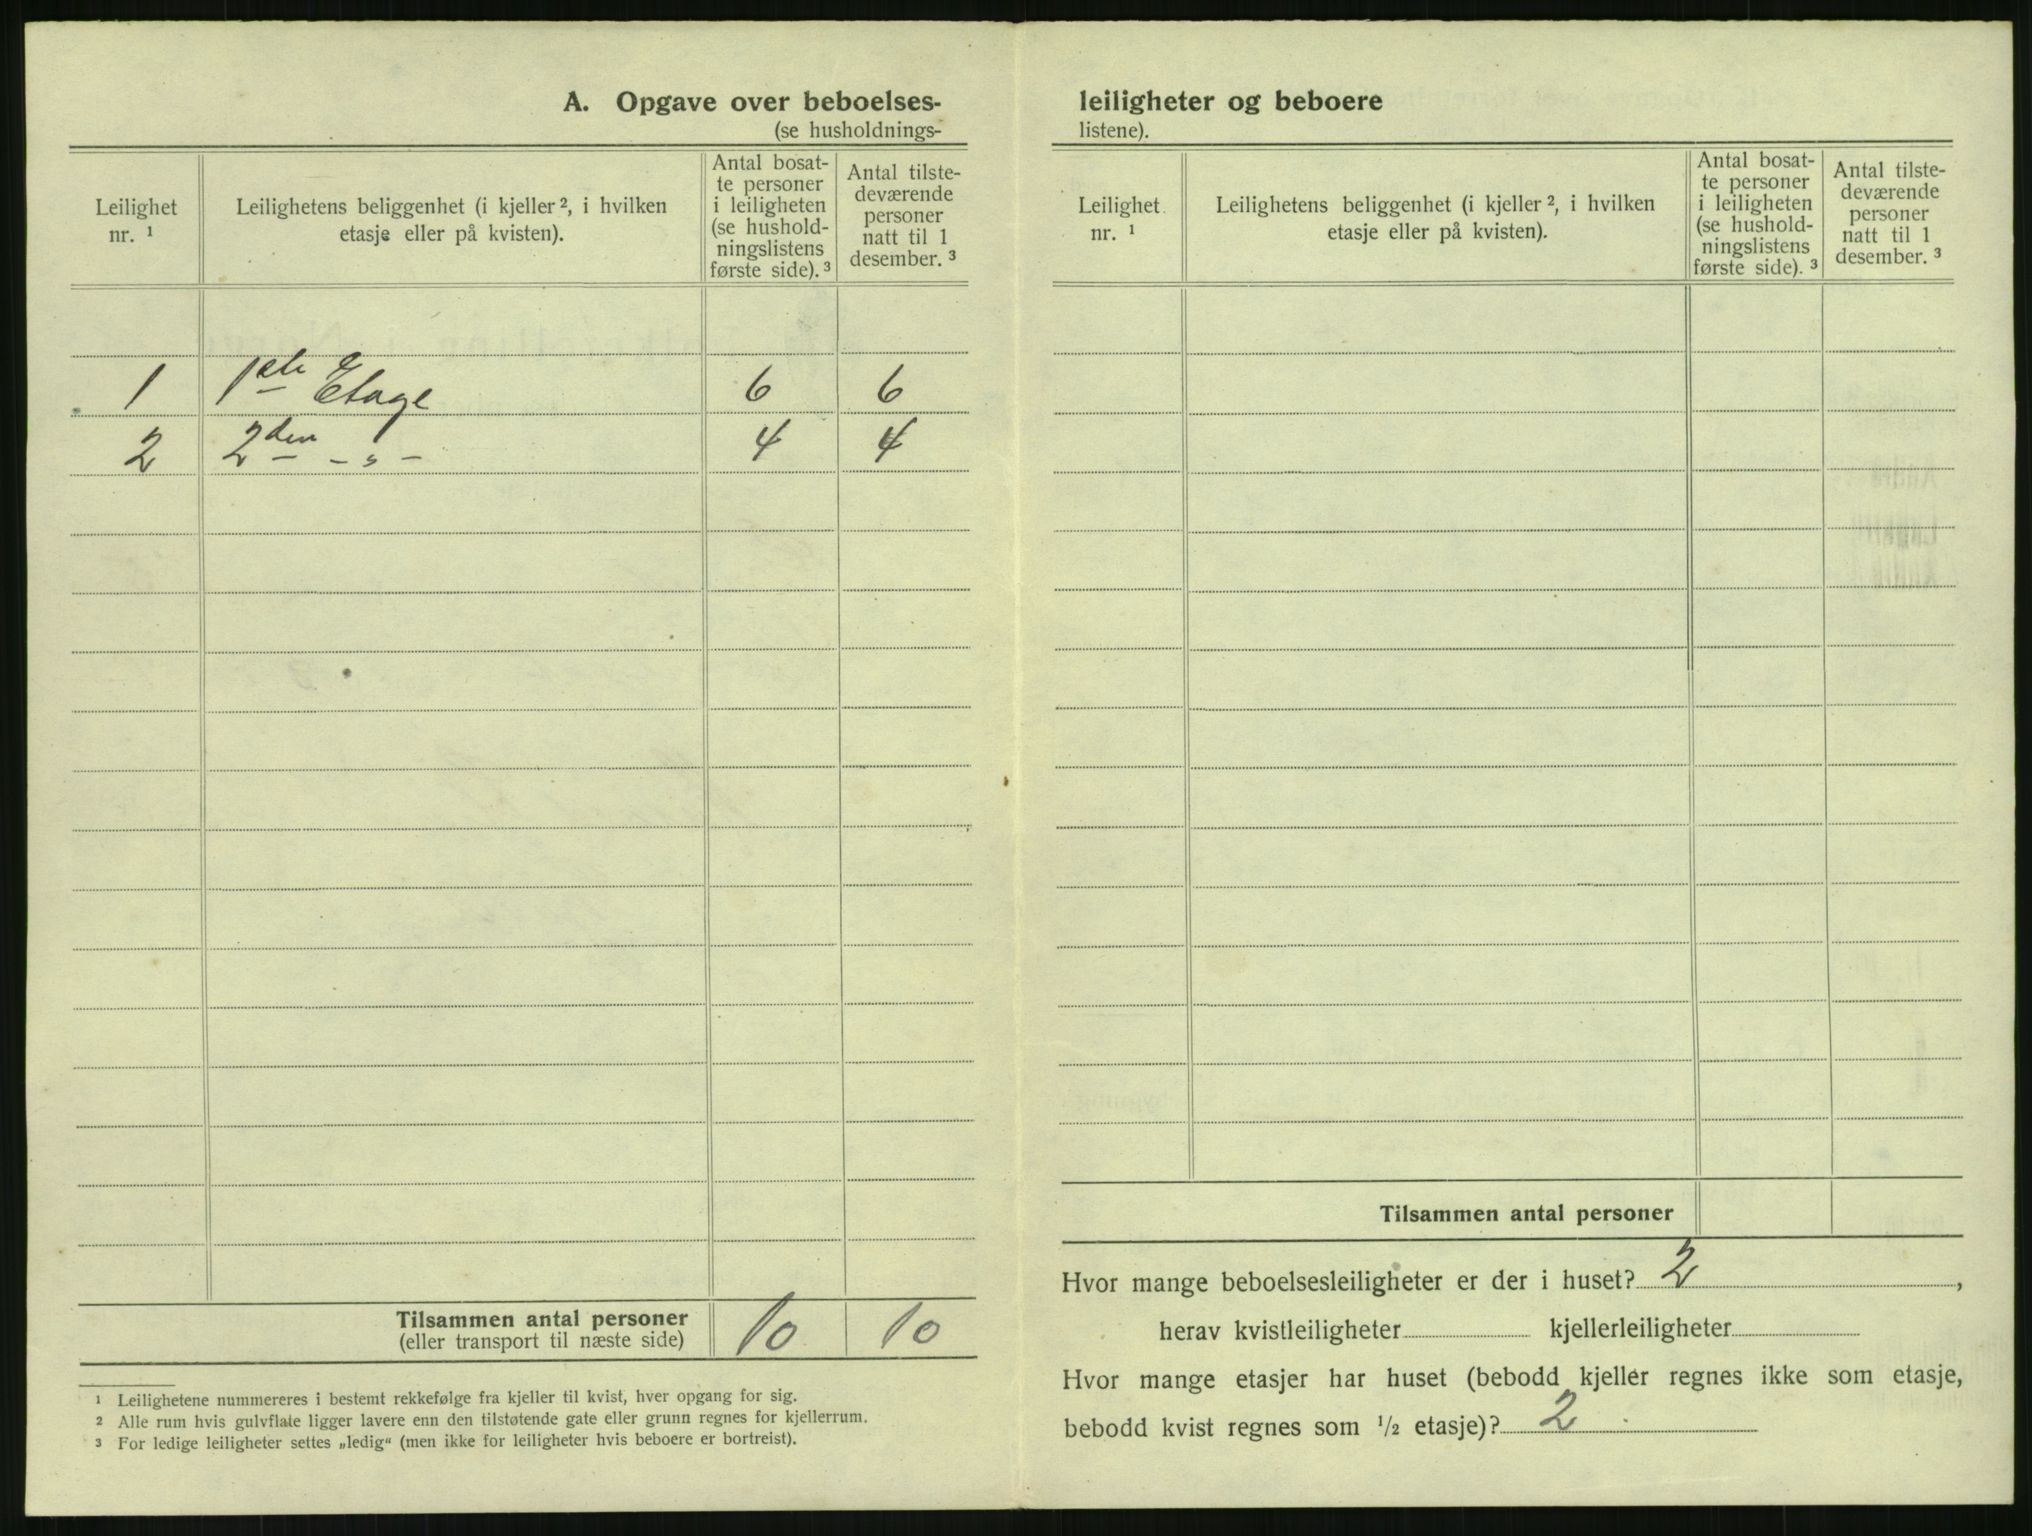 A. Opgave over beboelses-
(se husholdnings-
Leilighet nr. ¹
Leilighetens beliggenhet (i kjeller ², i hvilken etasje eller på kvisten).
Antal bosat-te personer i leiligheten (se hushold-ningslistens første side). ³
Antal tilste-deværende personer natt til 1 desember. ³
1 1ste Etage 6 6
2 2den - „ - 4 4
Tilsammen antal personer 10 10
(eller transport til næste side)
¹ Leilighetene nummereres i bestemt rekkefølge fra kjeller til kvist, hver opgang for sig.
² Alle rum hvis gulvflate ligger lavere enn den tilstøtende gate eller grunn regnes for kjellerrum.
³ For ledige leiligheter settes „ledig“ (men ikke for leiligheter hvis beboere er bortreist).
leiligheter og beboere
listene).
Leilighet nr. ¹
Leilighetens beliggenhet (i kjeller ², i hvilken etasje eller på kvisten).
Antal bosat-te personer i leiligheten (se hushold-ningslistens første side). ³
Antal tilste-deværende personer natt til 1 desember. ³
Tilsammen antal personer
Hvor mange beboelsesleiligheter er der i huset? 2,
herav kvistleiligheter kjellerleiligheter
Hvor mange etasjer har huset (bebodd kjeller regnes ikke som etasje,
bebodd kvist regnes som ½ etasje)? 2